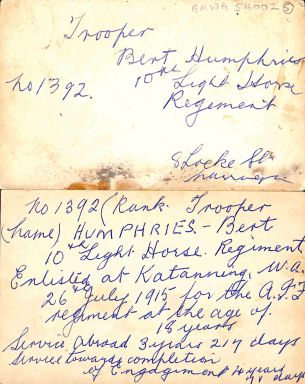 Trooper
Bert Humphries
No 1392. 10th Light Horse
Regiment
8 Locke St
No 1392 (Rank Trooper
(name) HUMPHRIES. - Bert
10th Light Horse. Regiment
Enlisted at Katanning, W.A.
26th July 1915 for the A.I.F
regiment at the age of
18 years
Service abroad 3 years 217 days
Service towards completion
of Engagement 4 years
47 days